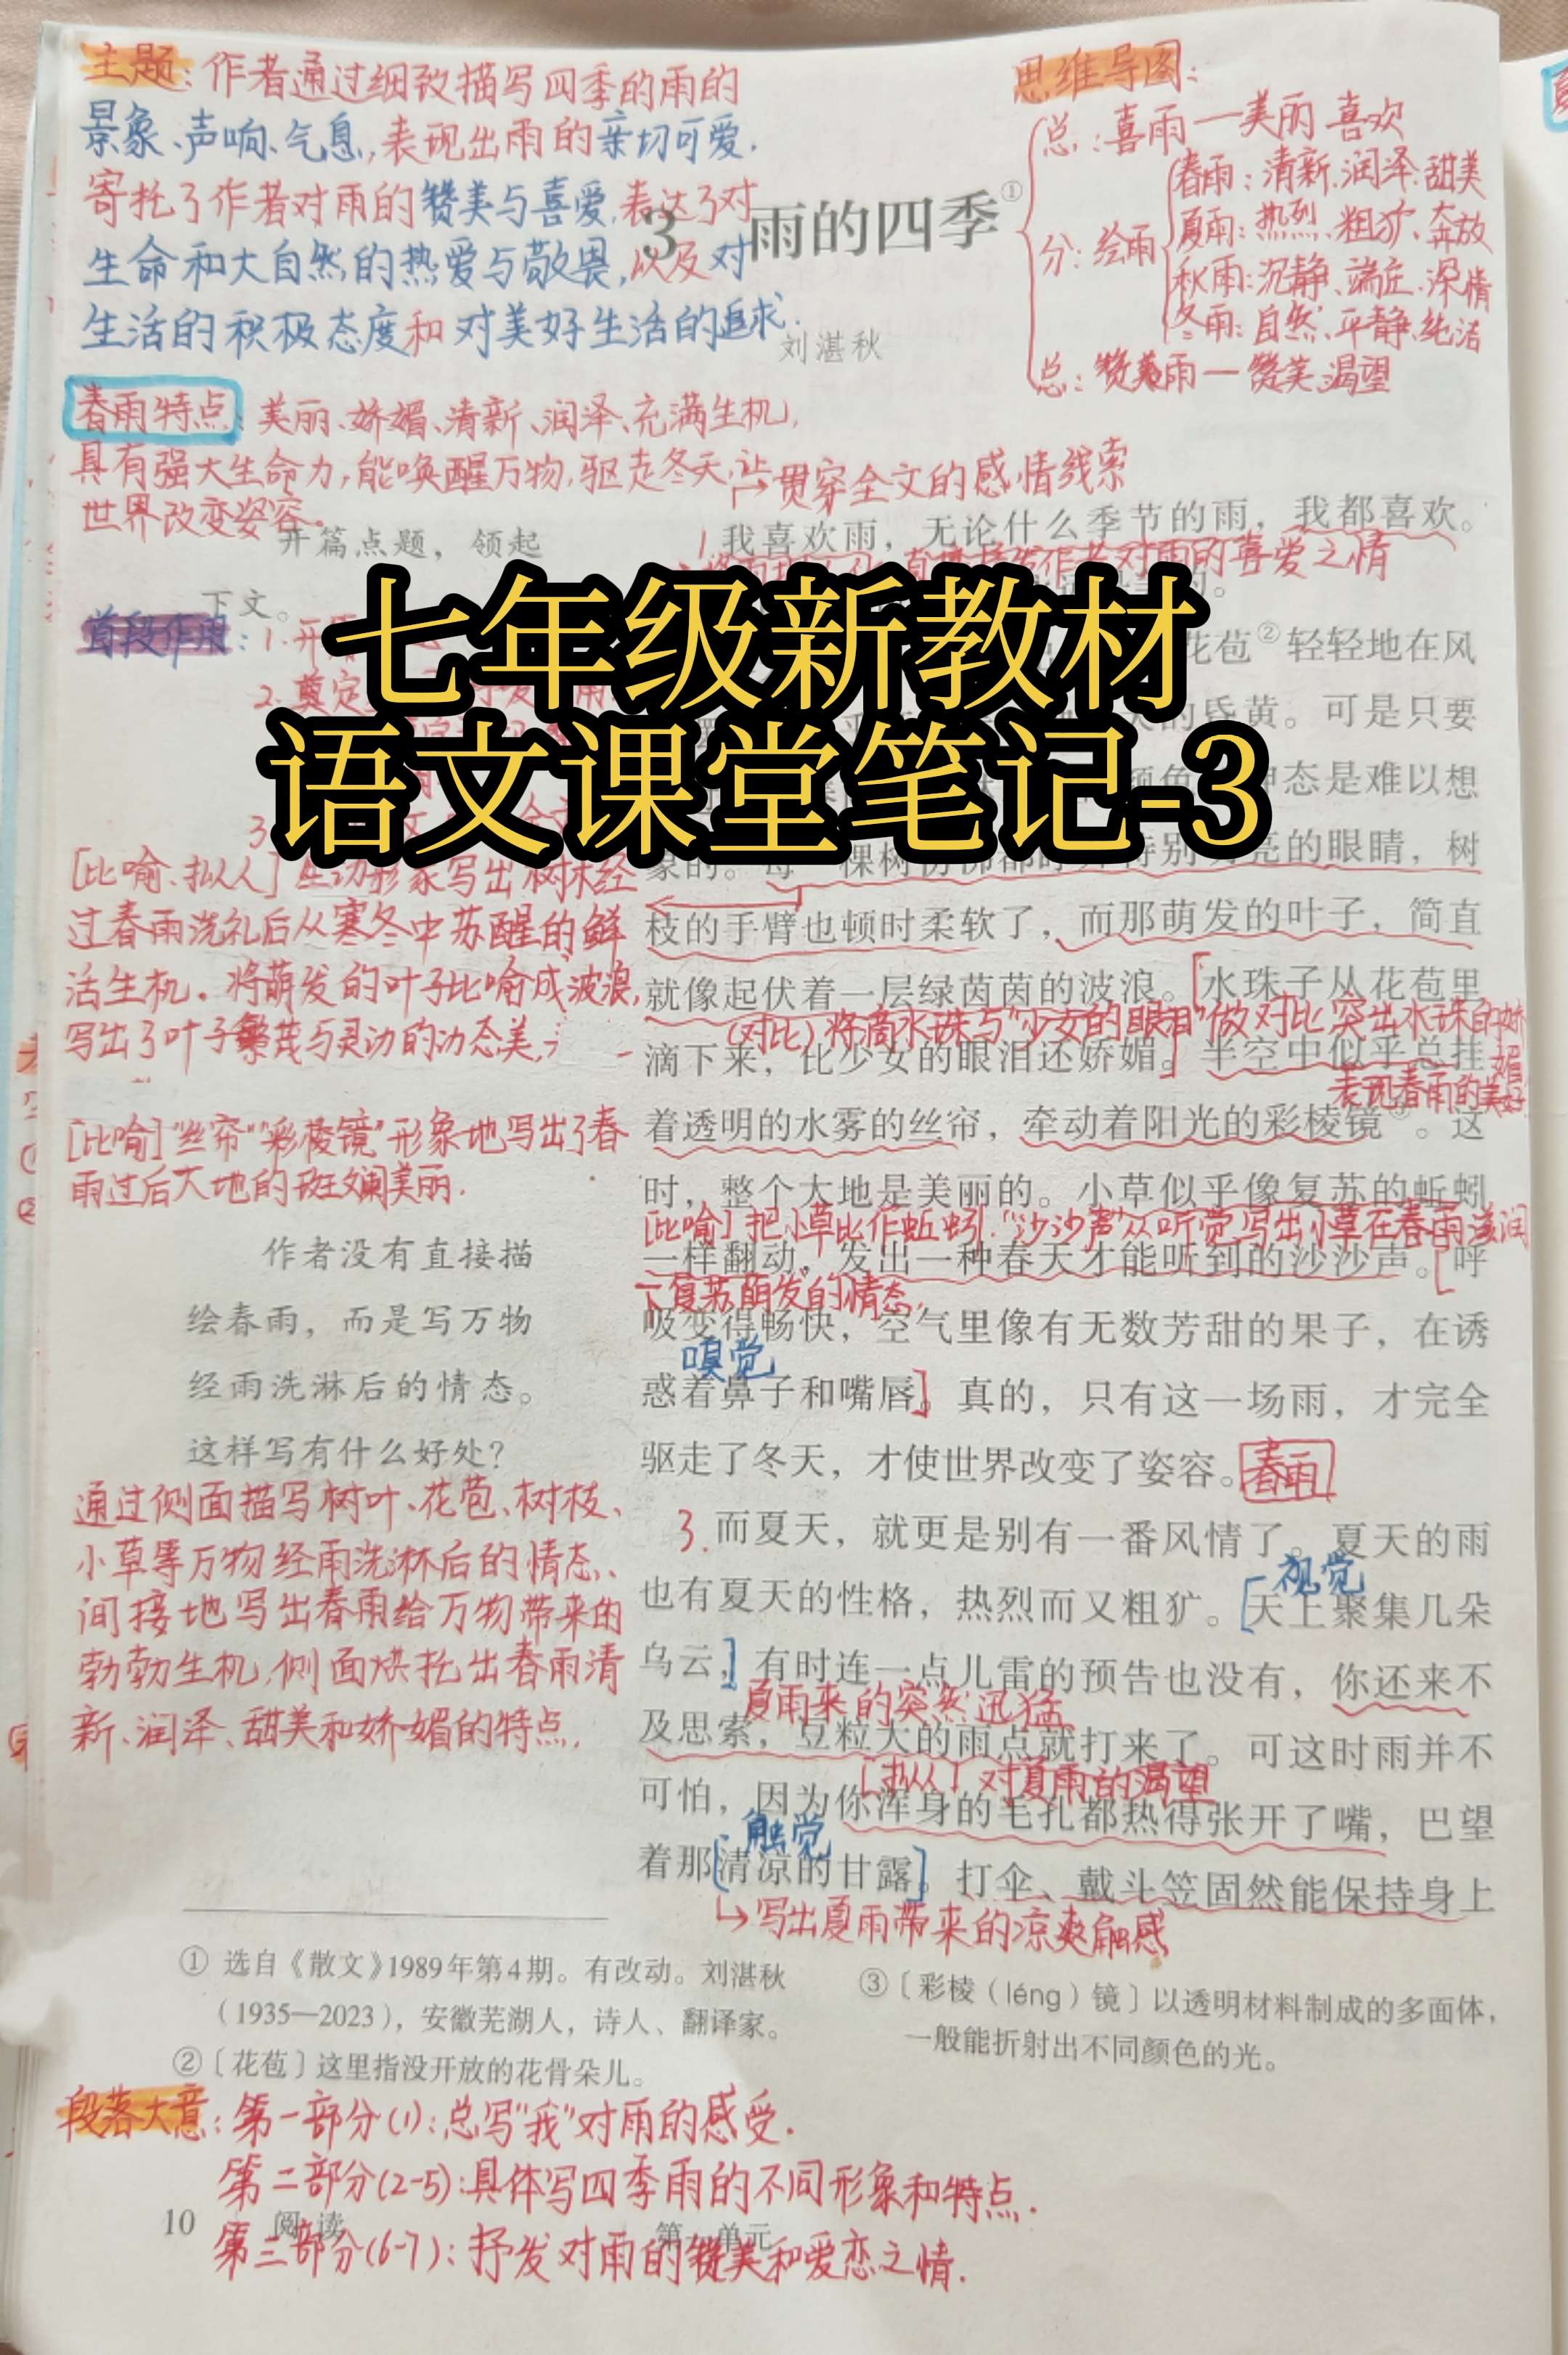 主题：作者通过细致描写四季的雨的
景象、声响、气息，表现出雨的亲切可爱.
寄托了作者对雨的赞美与喜爱，表达了对
生命和大自然的热爱与敬畏，以及对
生活的积极态度和对美好生活的追求.
思维导图：
总：喜雨—美丽 喜欢
分：绘雨
春雨：清新.润泽.甜美
夏雨：热烈、粗犷、奔放
秋雨：沉静、端庄、深情
冬雨：自然、平静、纯洁
总：赞美雨—赞美、渴望
3 雨的四季①
刘湛秋
春雨特点：美丽、娇媚、清新、润泽、充满生机，
具有强大生命力，能唤醒万物，驱走冬天，让
世界改变姿容。
开篇点题，领起
下文。
首段作用：1.开
2.奠定
3
七年级新教材
语文课堂笔记-3
[比喻、拟人]生动形象写出树木经
过春雨洗礼后从寒冬中苏醒的鲜
活生机。将萌发的叶子比喻成波浪，
写出了叶子繁茂与灵动的动态美，
[比喻]“丝帘”“彩棱镜”形象地写出了春
雨过后大地的斑斓美丽.
作者没有直接描
绘春雨，而是写万物
经雨洗淋后的情态。
这样写有什么好处？
通过侧面描写树叶、花苞、树枝、
小草等万物经雨洗淋后的情态、
间接地写出春雨给万物带来的
勃勃生机，侧面烘托出春雨清
新、润泽、甜美和娇媚的特点.
贯穿全文的感情线索
1.我喜欢雨，无论什么季节的雨，我都喜欢。
作者对雨的喜爱之情
花苞②轻轻地在风
的昏黄。可是只要
神态是难以想
象的。每一棵树仿佛都睁开特别明亮的眼睛，树
枝的手臂也顿时柔软了，而那萌发的叶子，简直
就像起伏着一层绿茵茵的波浪。[水珠子从花苞里
(对比)将滴水珠与“少女的眼泪”做对比突出水珠的娇
媚
滴下来，比少女的眼泪还娇媚。]半空中似乎总挂
表现春雨的美好
着透明的水雾的丝帘，牵动着阳光的彩棱镜③。这
时，整个大地是美丽的。小草似乎像复苏的蚯蚓
[比喻]把小草比作蚯蚓.“沙沙声”从听觉写出小草在春雨滋润
一样翻动，发出一种春天才能听到的沙沙声。[呼
下复苏萌发的情态，
吸变得畅快，空气里像有无数芳甜的果子，在诱
嗅觉
惑着鼻子和嘴唇]。真的，只有这一场雨，才完全
驱走了冬天，才使世界改变了姿容。春雨
3.而夏天，就更是别有一番风情了。夏天的雨
视觉
也有夏天的性格，热烈而又粗犷。[天上聚集几朵
乌云，]有时连一点儿雷的预告也没有，你还来不
夏雨来的突然迅猛
及思索，豆粒大的雨点就打来了。可这时雨并不
[拟人]对夏雨的渴望
可怕，因为你浑身的毛孔都热得张开了嘴，巴望
触觉
着那[清凉的甘露]。打伞、戴斗笠固然能保持身上
写出夏雨带来的凉爽触感
① 选自《散文》1989年第4期。有改动。刘湛秋
（1935—2023），安徽芜湖人，诗人、翻译家。
②〔花苞〕这里指没开放的花骨朵儿。
③〔彩棱（léng）镜〕以透明材料制成的多面体，
一般能折射出不同颜色的光。
段落大意：第一部分(1)：总写“我”对雨的感受.
第二部分(2-5)：具体写四季雨的不同形象和特点.
第三部分(6-7)：抒发对雨的赞美和爱恋之情.
10 阅读
第一单元